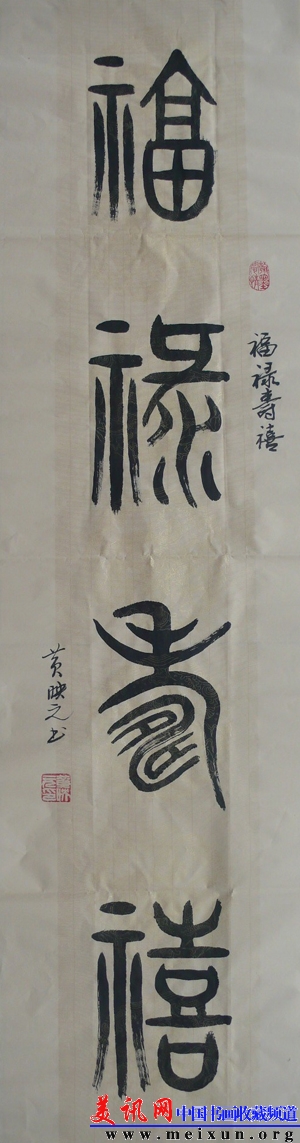 福
祿
壽
禧
福禄壽禧
黄映元书
美讯网 中国书画收藏频道
www.meixun.org